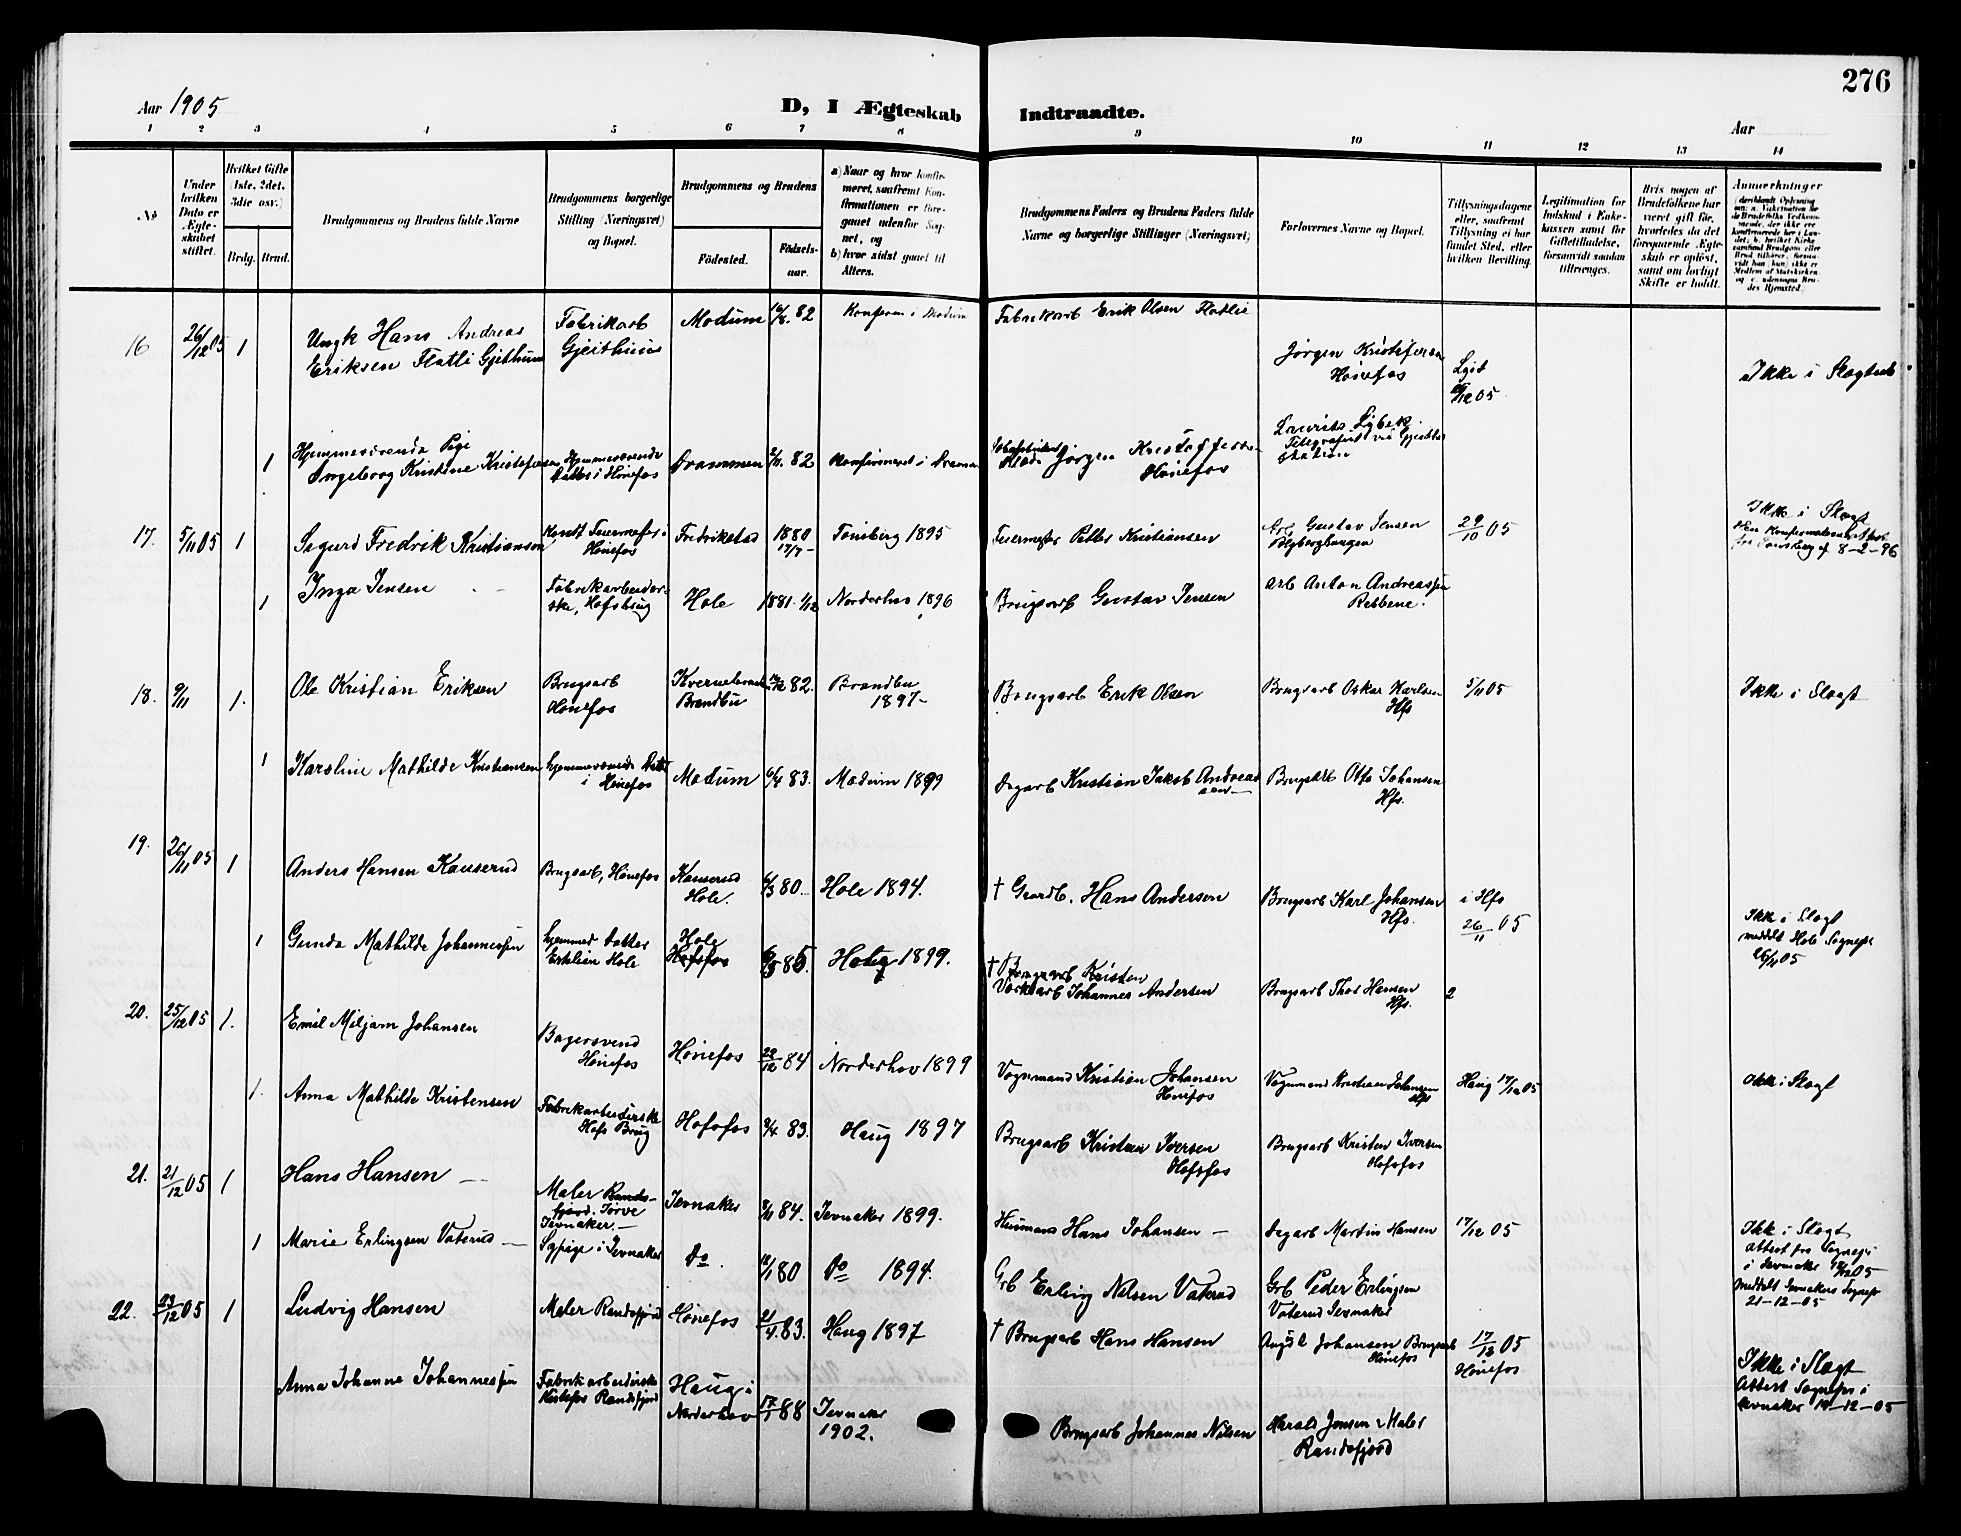 276
Aar 1905
D, I Ægteskab Indtraadte.
Aar
1 2 3 4 5 6 7 8 9 10 11 12 13 14
No
Under hvilken Dato er Ægteskabet stiftet.
Hvilket Gifte (1ste, 2det, 3die osv.)
Brdg. Brud.
Brudgommens og Brudens fulde Navne
Brudgommens borgerlige Stilling (Næringsvei) og Bopæl.
Brudgommens og Brudens
Fødested.
Fødselsaar.
a) Naar og hvor konfirmeret, saafremt Konfirmationen er foregaaet udenfor Sognet, og
b) hvor sidst gaaet til Alters.
Brudgommens Faders og Brudens Faders fulde Navne og borgerlige Stillinger (Næringsvei)
Forlovernes Navne og Bopæl.
Tillysningsdagene eller, saafremt Tillysning ei har fundet Sted, efter hvilken Bevilling.
Legitimation for Indskud i Enkekassen samt for Giftetilladelse, forsaavidt saadan tiltrænges.
Hvis nogen af Brudefolkene har været gift før, hvorledes da det foregaaende Ægteskab er opløst, samt om lovligt Skifte er holdt.
Anmerkninger
16 26/12 05 1 Ungk Hans Andreas Eriksen Flatli Gjeithuus
Fabrikarb Gjeithuus
Modum 82 Konfirm i Modum
Fabrikarb Erik Olsen Flatlie
Jørgen Kristofersen Hönefos
Lyst 05
Ikke i Slægtsk
1 Hjemmeværende Pige Ingeborg Kristine Kristofersen
Hjemmeværende Datter i Hönefos
Drammen 82 Konfirmeret i Dramen
Jørgen Kristoffersen Hönefos
Lauritz Lybeck Telegrafist ved Gjeithus Station
17. 5/11 05 1 Sigurd Fredrik Kristiansen
Hönefos
Fredrikstad 1880 17/7 Tönsberg 1895
Feiermester Petter Kristiansen
Grb Gustav Jensen
29/10 05
Ikke i Slægt
8-2-96
1 Inga Jensen
Fabrikarbeiderske, Hofsbrug
Hole 1881 1/12 Norderhov 1896
Brugsarb Gustav Jensen
Arb Anton Andreassen
18. 9/11 1. Ole Kristian Eriksen
Brugsarb Hönefos
Brandbu 82. Brandbu 1897
Brugsarb Erik Olsen
Brugsarb Oskar Karlsen Hfs
5/11 05
Ikke i Slægt
1 Karoline Mathilde Kristiansen
hjemmeværende Datter i Hönefos
Modum 6/4 83. Modum 1899
Dagarb Kristian Jakob Andreassen
Brugsarb Otto Johansen Hfs.
19. 26/11 05 1 Anders Hansen Kauserud
Brugsarb, Hönefos
Kauserud Hole. 6/3 80. Hole 1894.
† Gaardb. Hans Andersen
Brugsarb Karl Johansen Hfs.
i Hfs 26/11 05
1 Gunda Mathilde Johannessen
hjemmev Datter Hole
Hole Hofsfos 85. Haug 1899.
† Johannes Andersen
Brugsarb Thor Hansen Hfs.
2
Ikke i Slægt meddelt Hole Sognepr 26/11 05
20. 25/12 05 1. Emil Miljam Johansen
Bagersvend Hönefos
Hönefos 22/12 84 Norderhov 1899
Vognmand Kristian Johansen Hönefos
Vognmand Kristian Johansen Hfs
Haug 17/12 05
ikke i Slægt
1. Anna Mathilde Kristensen
Fabrikarbeiderske Hofs Brug
Hofsfos 9/4 83. Haug 1897
Brugsarb Kristian Iversen Hofsfos
Brugsarb Kristen Iversen Hofsfos
21. 21/12 05 1 Hans Hansen
Maler Randsfjord. Jevnaker.
Jevnaker 84. Jevnaker 1899.
Husmand Hans Johansen
Dagarb Martin Hansen
17/12 05
Ikke i Slægt attest fra Sognepr i Jevnaker 05 meddelt Jevnakers Sognepr 21-12-05
1 Marie Erlingsen Vaterud
Sypige i Jevnaker
Do 80 Do 1894.
Grb Erling Nilsen Vaterud
Grb Peder Erlingsen Vaterud Jevnaker
22. 23/12 05 1 Ludvig Hansen
Maler Randsfjord
Hönefos 21/4 83. Haug 1897
† Brugsarb Hans Hansen
August Johansen Brugsarb Hönefos
17/12 05 Hönefos
Anna Johanne Johannessen
Fabrikarbeiderske Kistefos Randsfjord
Haug i Norderhov 17/1 88 Jevnaker 1902.
Brugsarb Johannes Nilsen
Harald Jensen Maler Randsfjord
Ikke i Slægt Attest Sognepr i Jevnaker 19-12-05